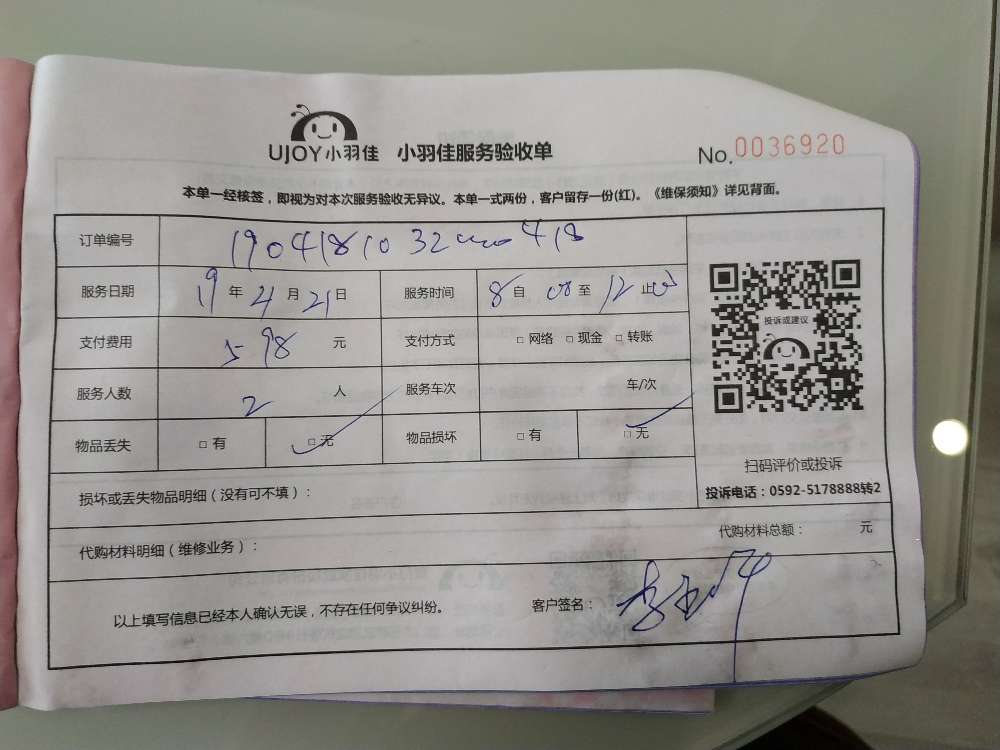 UJOY小羽佳 小羽佳服务验收单 No.0036920
本单一经核签，即视为对本次服务验收无异议。本单一式两份，客户留存一份(红)。《维保须知》详见背面。
订单编号
服务日期 19年4月21日 服务时间 8自00至12止00
支付费用 598元 支付方式 □网络 □现金 □转账
服务人数 2人 服务车次 车/次
物品丢失 □有 □无 物品损坏 □有 □无
投诉或建议
扫码评价或投诉
投诉电话：0592-5178888转2
损坏或丢失物品明细（没有可不填）：
代购材料明细（维修业务）： 代购材料总额： 元
以上填写信息已经本人确认无误，不存在任何争议纠纷。 客户签名：